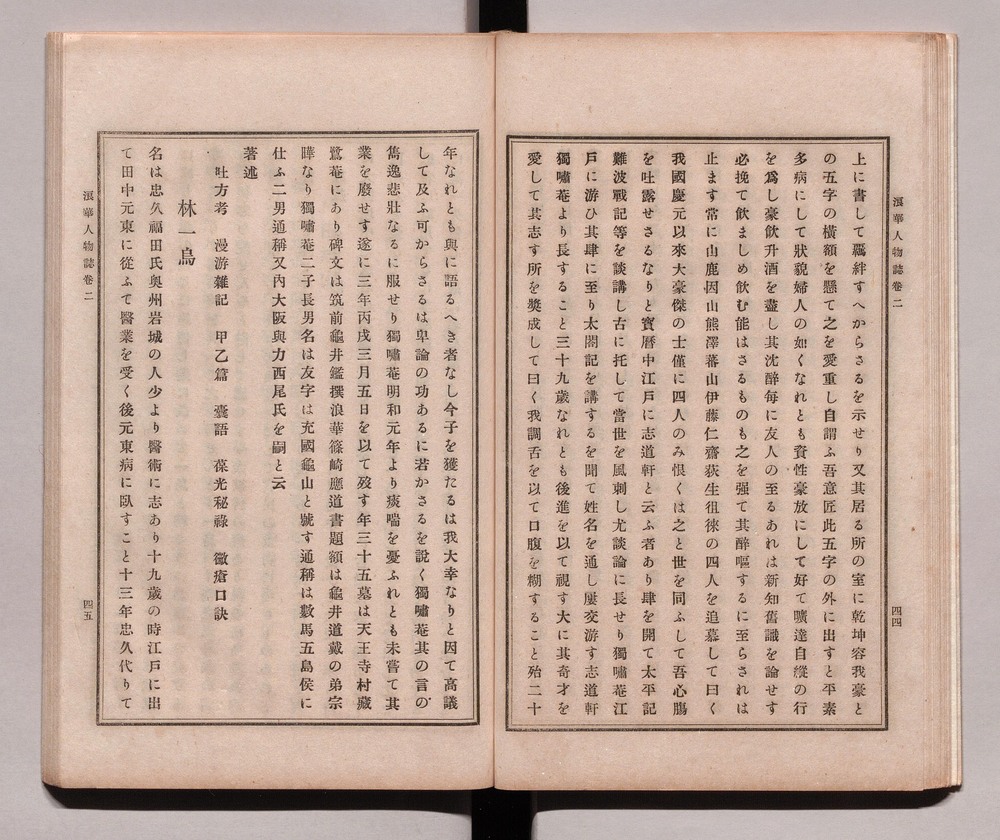 浪華人物誌卷二
四四
上に書して羈絆すへからさるを示せり又其居る所の室に乾坤容我豪と
の五字の橫額を懸て之を愛重し自謂ふ吾意匠此五字の外に出すと平素
多病にして狀貌婦人の如くなれとも資性豪放にして好て曠達自縱の行
を爲し豪飮升酒を盡し其沈醉每に友人の至るあれは新知舊識を論せす
必挽て飮ましめ飮む能はさるものも之を强て其醉嘔するに至らされは
止ます常に山鹿因山熊澤蕃山伊藤仁齋荻生徂徠の四人を追慕して曰く
我國慶元以來大豪傑の士僅に四人のみ恨くは之と世を同ふして吾心膓
を吐露せさるなりと寳曆中江戸に志道軒と云ふ者あり肆を開て太平記
難波戰記等を談講し古に托して當世を風刺し尤談論に長せり獨嘯菴江
戸に游ひ其肆に至り太閤記を講するを聞て姓名を通し屢交游す志道軒
獨嘯菴より長すること三十九歲なれとも後進を以て視す大に其奇才を
愛して其志す所を奬成して曰く我調舌を以て口腹を糊すること殆二十
年なれとも與に語るへき者なし今子を獲たるは我大幸なりと因て高議
して及ふ可からさるは卑論の功あるに若かさるを說く獨嘯菴其の言の
雋逸悲壯なるに服せり獨嘯菴明和元年より痰喘を憂ふれとも未嘗て其
業を廢せす遂に三年丙戌三月五日を以て歿す年三十五墓は天王寺村藏
鷺菴にあり碑文は筑前龜井鑑撰浪華篠崎應道書題額は龜井道戴の弟宗
曄なり獨嘯菴二子長男名は友字は充國龜山と號す通稱は數馬五島侯に
仕ふ二男通稱又內大阪與力西尾氏を嗣と云
著述
吐方考 漫游雜記 甲乙篇 囊語 葆光秘祿 黴瘡口訣
林一烏
名は忠久福田氏奧州岩城の人少より醫術に志あり十九歲の時江戸に出
て田中元東に從ふて醫業を受く後元東病に臥すこと十三年忠久代りて
浪華人物誌卷二
四五